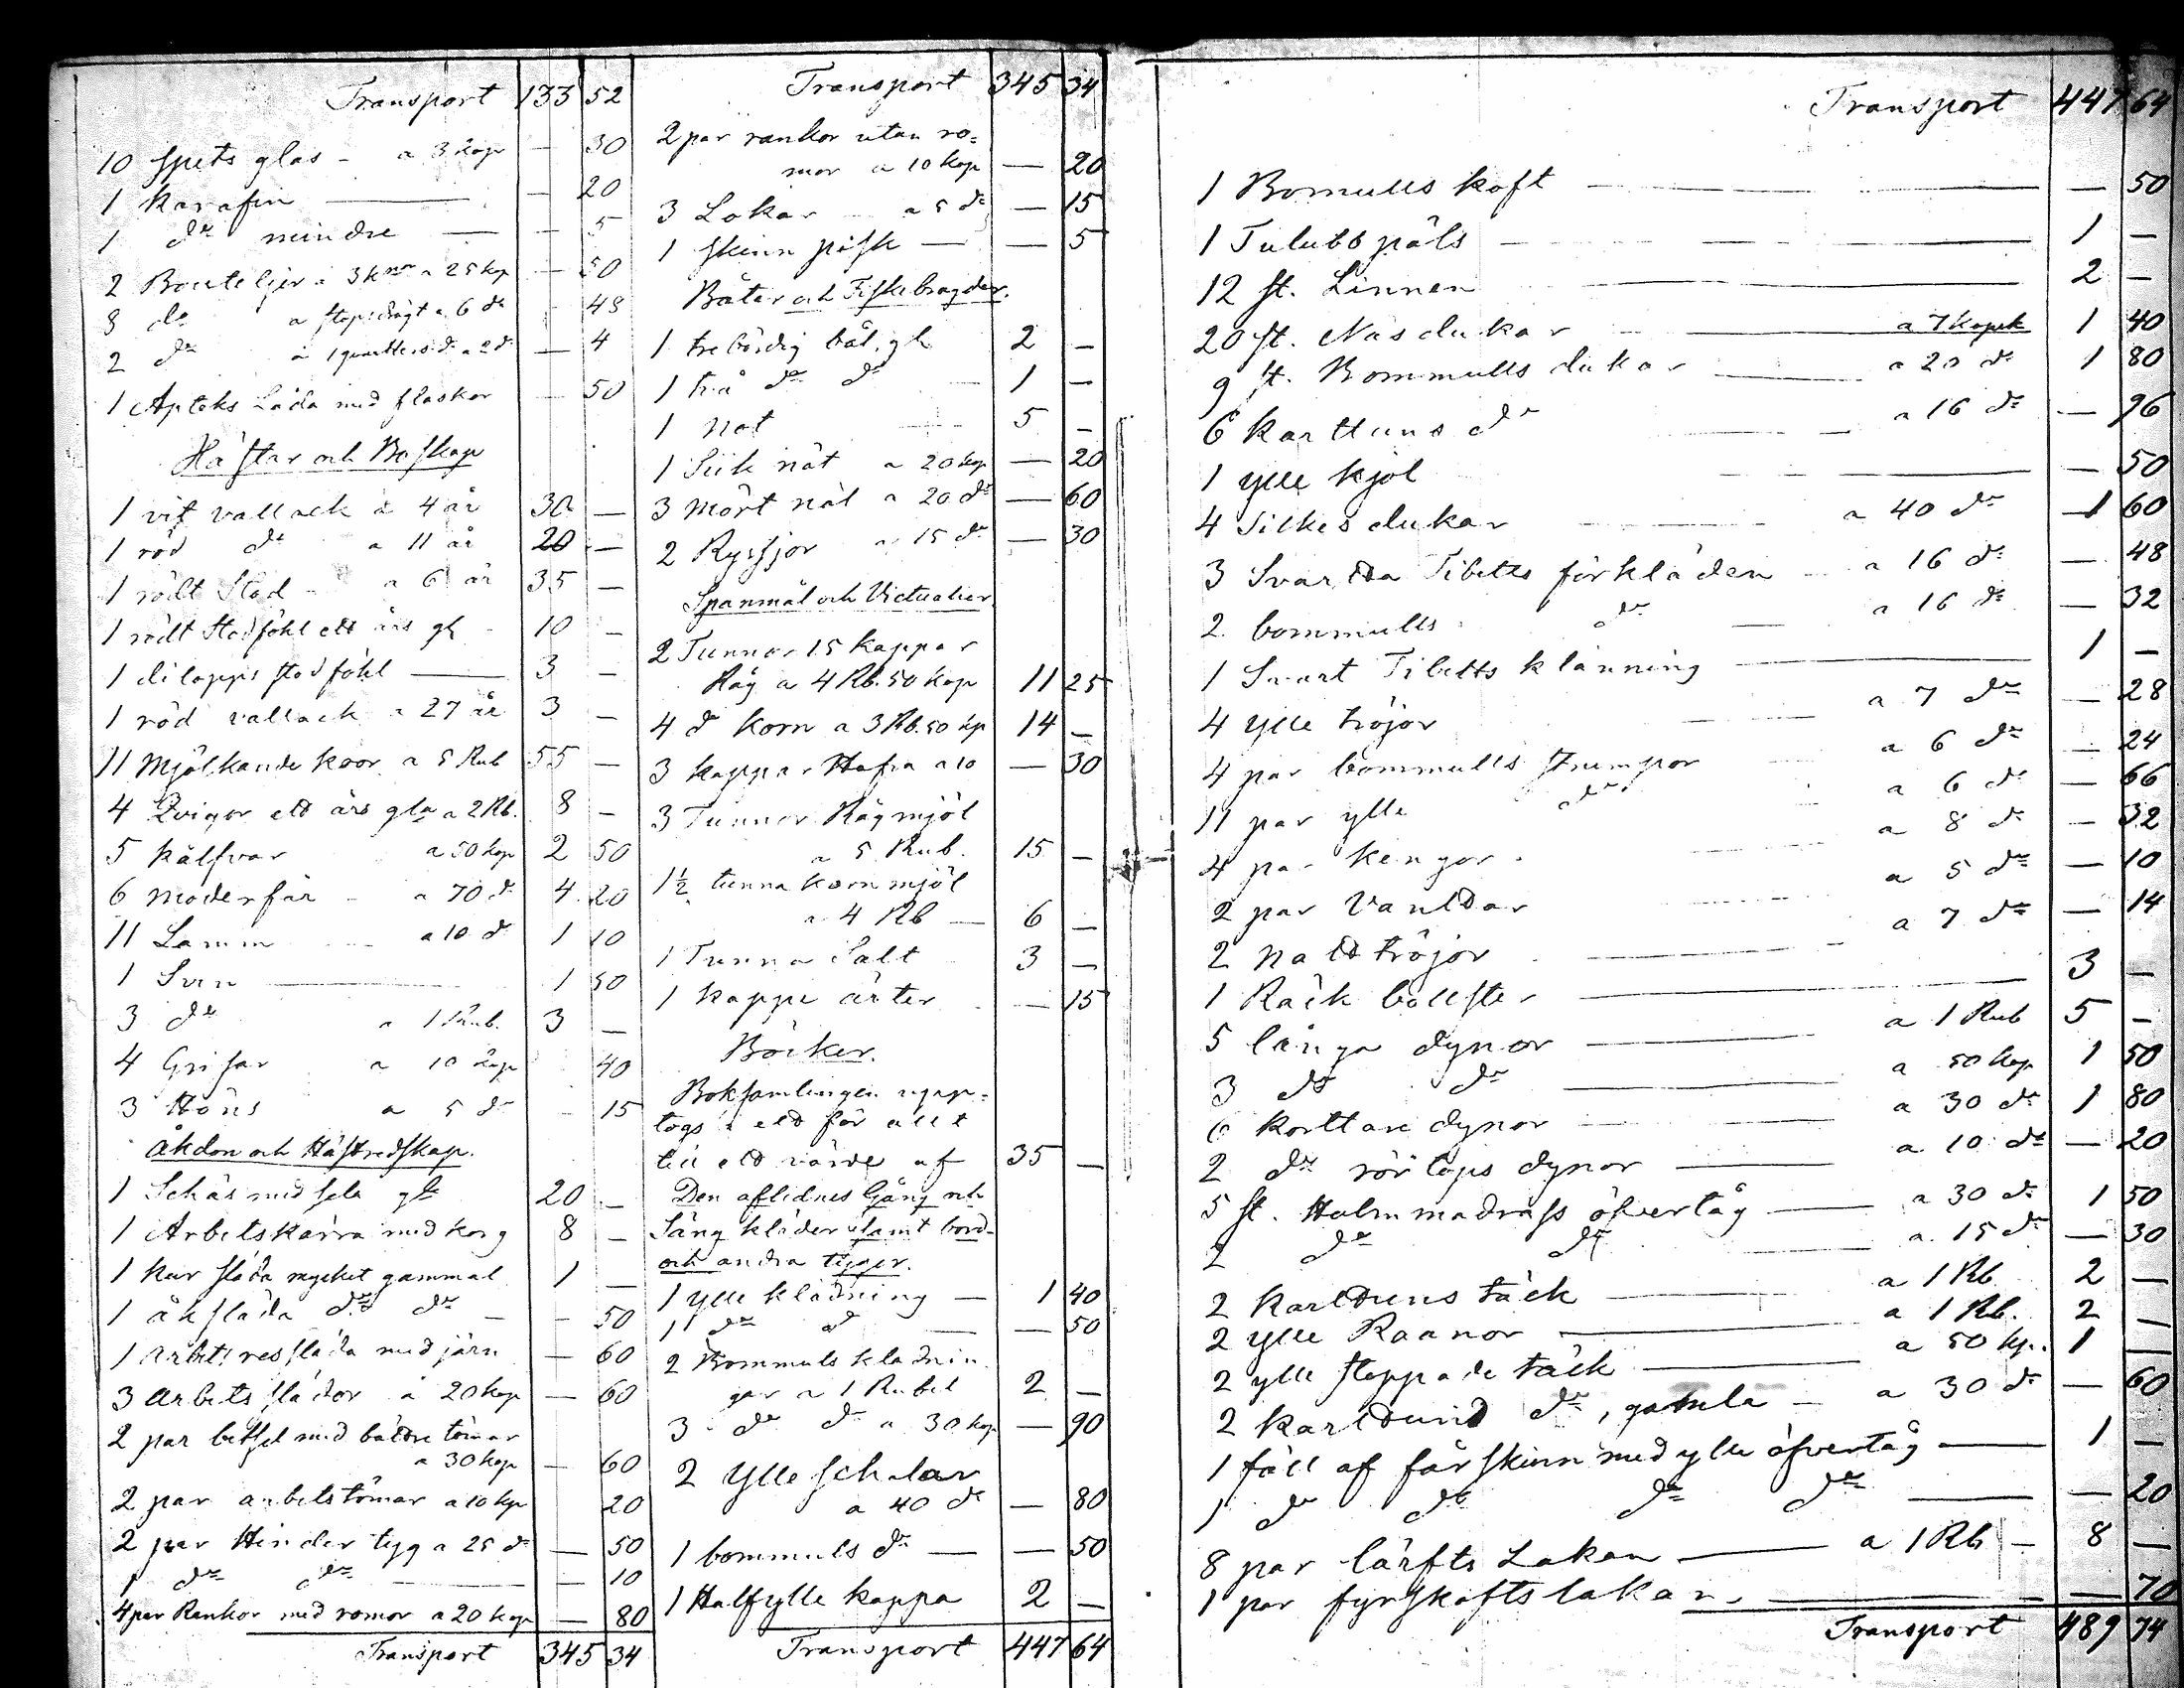 Transport 133 52
10 Spets glas - a 3 kop — 30
1 Karafin — — 20
1 do mindre — — 5
2 Bouteljer a 3 knor a 25 kop — 50
8 do a stopsdrygt a 6 do — 48
2 do a 1 quarters do a 2 do — 4
1 Apteks Låda med flaskor — 50
Hästar och Boskap
1 vit vallack a 4 år 30 —
1 röd do a 11 år 20 —
1 rödt Stod - a 6 år 35 —
1 rödt Stodföhl ett års gl - 10 —
1 dilopps stodföhl — 3 —
1 röd vallack a 27 år 3 —
11 Mjölkande koor a 5 Rub 55 —
4 Qvigor ett års gla a 2 Rb. 8 —
5 kalfvar a 50 kop 2 50
6 moderfår - a 70 do 4 20
11 Lamm a 10 do 1 10
1 Svin — 1 50
3 do a 1 Rub. 3 —
4 Grisar a 10 kop 40
3 Höns a 5 do - 15
Åkdon och Hästredskap.
1 Schäs med sela gl 20 —
1 Arbetskärra med korg 8 —
1 kur släda mycket gammal 1 —
1 åksläda do do — - 50
1 Arbets ressläda med järn — 60
3 arbets slädor a 20 kop — 60
2 par betsel med bättre tömar
a 30 kop — 60
2 par arbetstömar a 10 kop 20
2 par Hinder tyg a 25 do — 50
1 do do — — 10
4 par Rankor med romor a 20 kop — 80
Transport 345 34
Transport 345 34
2 par rankor utan ro=
mor a 10 kop — 20
3 Lokar a 5 do — 15
1 skinn pisk — — 5
Båtar och Fiskebragder.
1 trebördig båt, gl 2 —
1 två do do — 1 —
1 not 5 —
1 Siik nät a 20 kop — 20
3 mört nät a 20 do — 60
2 Ryssjor a 15 do — 30
Spanmål och Victualier.
2 Tunnor 15 kappar
Råg a 4 Rb. 50 kop 11 25
4 do korn a 3 Rb. 50 kp 14 —
3 kappar Hafra a 10 — 30
3 Tunnor Rågmjöl
a 5 Rub. 15 —
1½ tunna kornmjöl
a 4 Rb — 6 —
1 Tunna Salt 3 —
1 kappe ärter — 15
Böcker.
Boksamlingen upp=
togs i ett för allt
till ett värde af 35 —
Den aflidnes Gång och
Säng kläder samt bord-
och andra tyger.
1 ylle klädning — 1 40
1 do do — — 50
2 Bommuls kladnin
gar a 1 Rubel 2 —
3 do do a 30 kop — 90
2 Ylle schalar
a 40 do — 80
1 bommuls do — — 50
1 Halfylle kappa 2 —
Transport 447 64
Transport 447 64
1 Bomulls koft — — 50
1 Tulubb päls — 1 —
12 st. Linnen — 2 —
20 st. Näsdukar — a 7 kopek 1 40
9 st. Bommulls dukar — a 20 do 1 80
6 karttuns do — a 16 do — 96
1 ylle kjol — — 50
4 Silkes dukar a 40 do 1 60
3 Svartta Tibetts förkläden a 16 do — 48
2 bommulls do — a 16 do — 32
1 Svart Tibetts klänning — 1 —
4 ylle tröjor a 7 do — 28
4 par bommulls strumpor a 6 do — 24
11 par ylle do a 6 do — 66
4 par kengor a 8 do — 32
2 par Vanttar a 5 do — 10
2 natttröjor a 7 do — 14
1 Räck bollster — 3 —
5 långa dynor — a 1 Rub 5 —
3 do do — a 50 kop 1 50
6 korttare dynor — a 30 do 1 80
2 do rörtåps dynor — a 10 do — 20
5 st. Halmmadrass öfvertåg — a 30 do 1 50
2 do do — a 15 do — 30
2 karttuns täck — a 1 Rb 2 —
2 ylle Raanor — a 1 Rb. 2 —
2 ylle stoppade täck — a 50 kp. 1 —
2 karttuns do, gamla — a 30 do — 60
1 fäll af fårskinn med ylle öfvertåg — 1 —
1 do do do do — — 20
8 par lärfts Lakan — a 1 Rb - 8 —
1 par fyrskaftslakan. — — 70
Transport 489 74